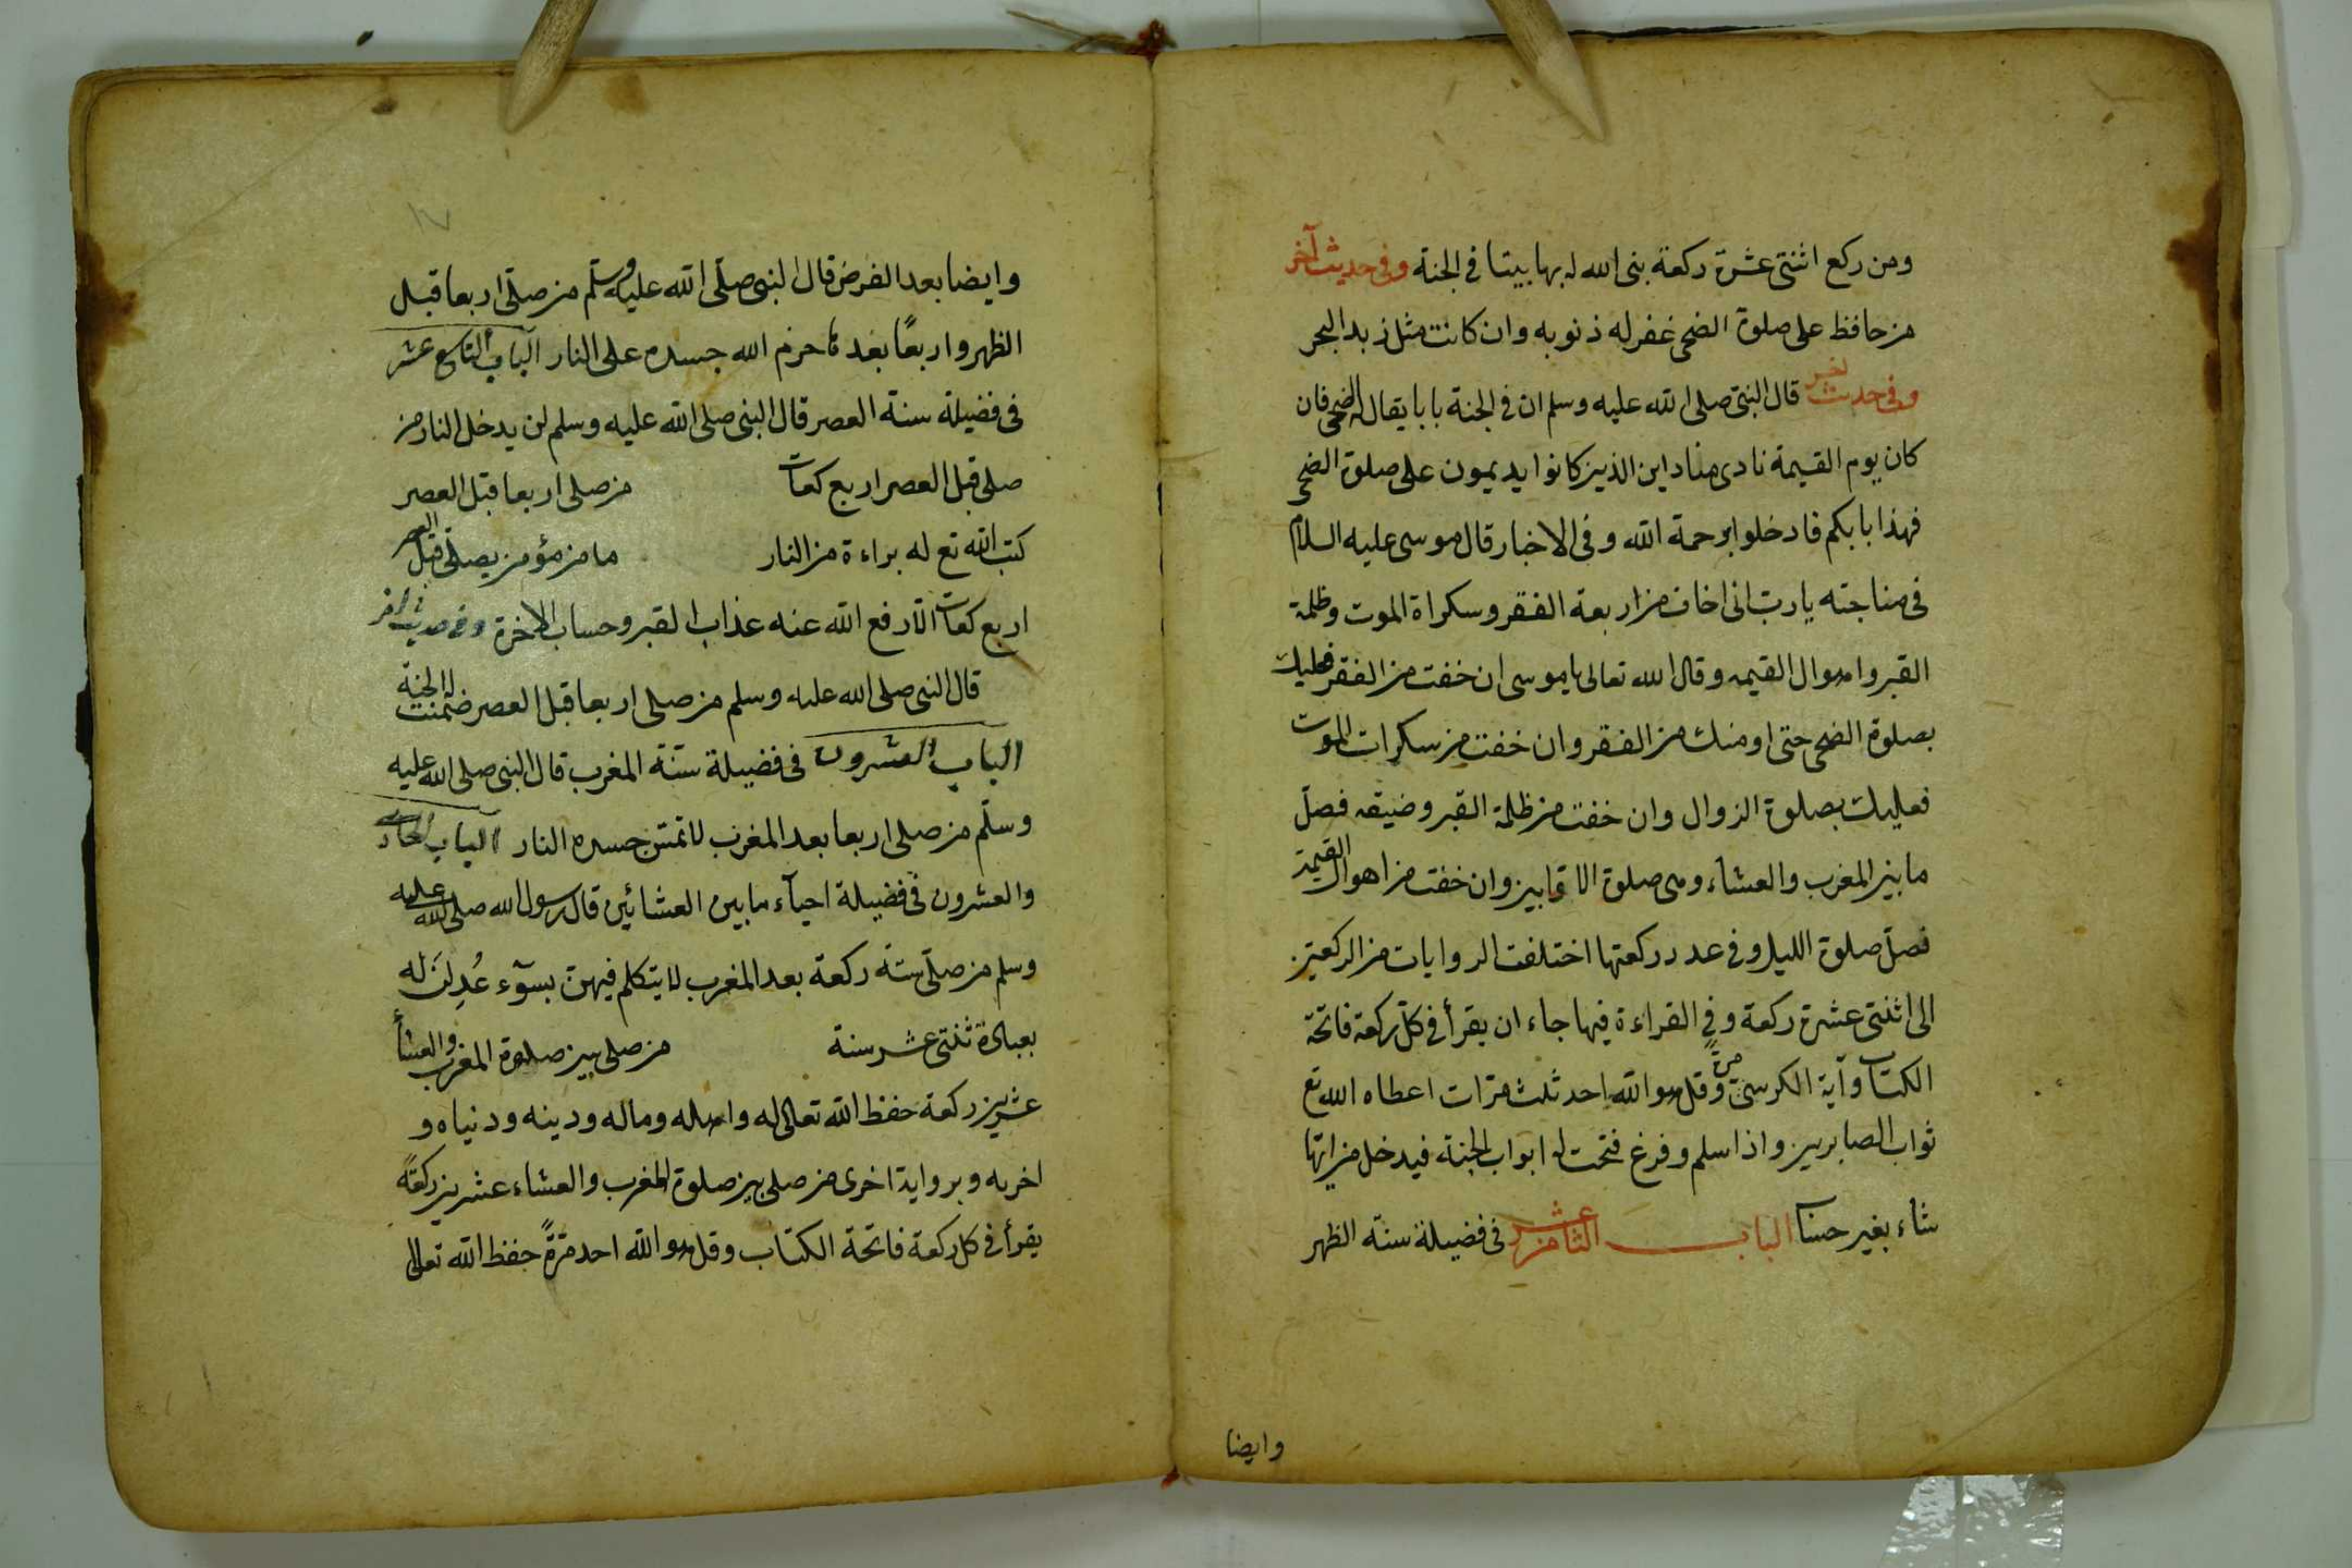 ومن ركع اثنتى عشرة ركعة بنى الله له بها بيتا فى الجنة وفى حديث آخر
من حافظ على صلوة الضحى غفر له ذنوبه وان كانت مثل زبد البحر
وفى حديث اخر قال النبى صلى الله عليه وسلم ان فى الجنة بابا يقال له الضحى فان
كان يوم القيمة نادى مناد اين الذين كانوا يديمون على صلوة الضحى
فهذا بابكم فادخلوا برحمة الله وفى الاخبار قال موسى عليه السلام
فى مناجته يا رب انى اخاف من اربعة الفقر وسكراة الموت وظلمة
القبر واهوال القيمه وقال الله تعالى يا موسى ان خفت من الفقر فعليك
بصلوة الضحى حتى اومنك من الفقر وان خفت من سكرات الموت
فعليك بصلوة الزوال وان خفت من ظلمة القبر وضيقه فصل
ما بين المغرب والعشاء وهى صلوة الاوابين وان خفت من اهوال القيمة
فصل صلوة الليل وفى عدد ركعتها اختلفت الروايات من الركعتين
الى اثنتى عشرة ركعة وفى القراءة فيها جاء ان يقرأ فى كل ركعة فاتحة
الكتاب وآية الكرسى مرة وقل هو الله احد ثلث مرات اعطاه الله تع
ثواب الصابرين واذا سلم وفرغ فتحت له ابواب الجنة فيدخل من ايها
شاء بغير حساب الباب الثامن عشر فى فضيلة سنة الظهر
وايضا
١٧
وايضا بعد الفرض قال النبى صلى الله عليه وسلم من صلى اربعا قبل
الظهر واربعًا بعدها حرم الله جسده على النار الباب التاسع عشر
فى فضيلة سنة العصر قال النبى صلى الله عليه وسلم لن يدخل النار من
صلى قبل العصر اربع ركعات من صلى اربعا قبل العصر
كتب الله تع له براءة من النار ما من مؤمن يصلى قبل العصر
اربع ركعات الا رفع الله عنه عذاب القبر وحساب الاخرة وفى حديث اخر
قال النبى صلى الله عليه وسلم من صلى اربعا قبل العصر ضمنت له الجنة
الباب العشرون فى فضيلة سنة المغرب قال النبى صلى الله عليه
وسلم من صلى اربعا بعد المغرب لا تمس جسده النار الباب الحادى
والعشرون فى فضيلة احياء ما بين العشائين قال رسول الله صلى الله عليه
وسلم من صلى ستة ركعة بعد المغرب لا يتكلم فيهن بسوء عُدِلن له
بعبادة ثنتى عشر سنة من صلى بين صلوة المغرب والعشأ
عشرين ركعة حفظ الله تعالى له واهله وماله ودينه ودنياه و
اخريه وبرواية اخرى من صلى بين صلوة المغرب والعشاء عشرين ركعةً
يقرأ فى كل ركعة فاتحة الكتاب وقل هو الله احد مرةً حفظ الله تعالى